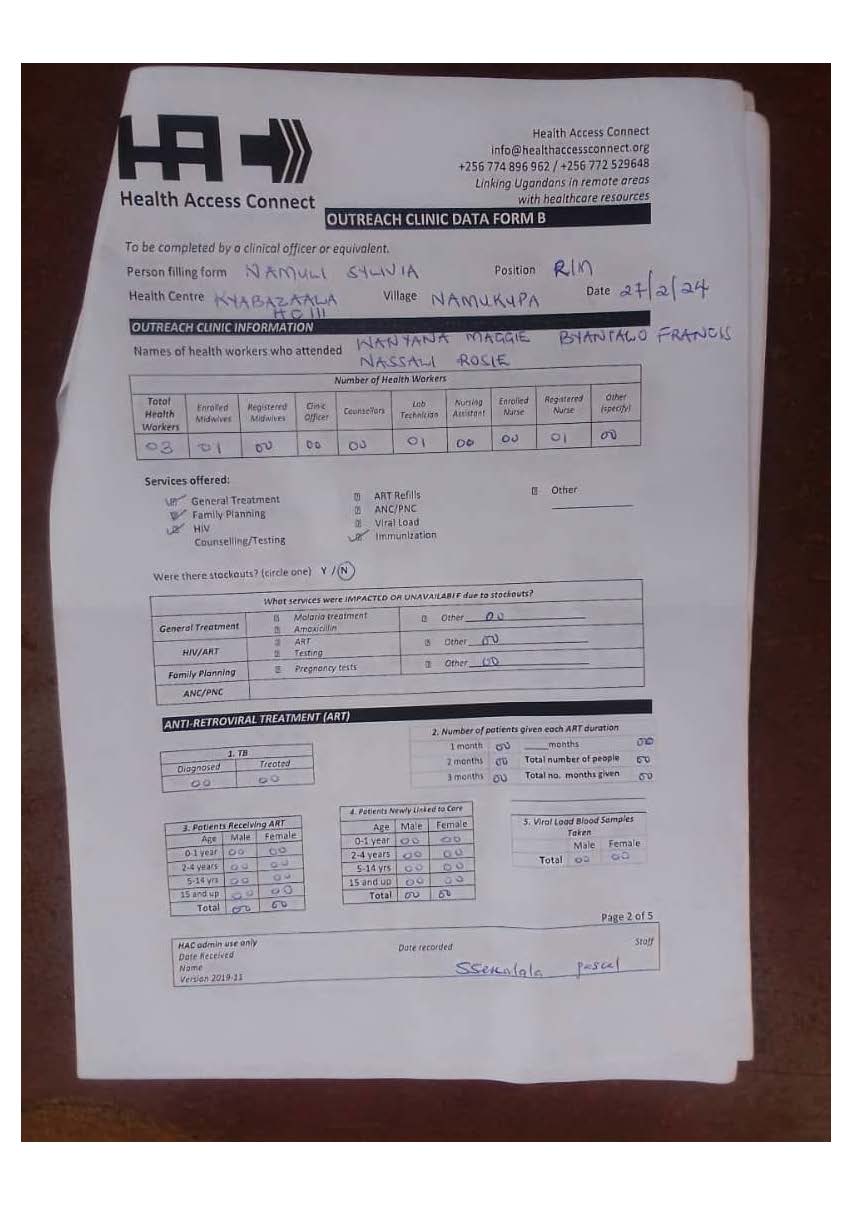 Health Access Connect
info@healthaccessconnect.org
+256 774 896 962 / +256 772 529648
Linking Ugandans in remote areas
with healthcare resources
HA
Health Access Connect
OUTREACH CLINIC DATA FORM B
To be completed by a clinical officer or equivalent.
Person filling form NAMULI SYLIVIA Position R/M
Health Centre KYABAZAALA HC III Village NAMUKUPA Date 27/2/24
OUTREACH CLINIC INFORMATION
Names of health workers who attended WANYANA MAGGIE BYANTALO FRANCIS
NASSALI ROSIE
Number of Health Workers
Total Health Workers Enrolled Midwives Registered Midwives Clinic Officer Counsellors Lab Technician Nursing Assistant Enrolled Nurse Registered Nurse Other (specify)
03 01 00 00 00 01 00 00 01 00
Services offered:
General Treatment ART Refills Other
Family Planning ANC/PNC
HIV Viral Load
Counselling/Testing Immunization
Were there stockouts? (circle one) Y / N
What services were IMPACTED OR UNAVAILABLE due to stockouts?
General Treatment Malaria treatment Other 00
Amoxicillin
HIV/ART ART Other 00
Testing
Family Planning Pregnancy tests Other 00
ANC/PNC
ANTI-RETROVIRAL TREATMENT (ART)
1. TB
Diagnosed Treated
00 00
2. Number of patients given each ART duration
1 month 00 ____months 00
2 months 00 Total number of people 00
3 months 00 Total no. months given 00
3. Patients Receiving ART
Age Male Female
0-1 year 00 00
2-4 years 00 00
5-14 yrs 00 00
15 and up 00 00
Total 00 00
4. Patients Newly Linked to Care
Age Male Female
0-1 year 00 00
2-4 years 00 00
5-14 yrs 00 00
15 and up 00 00
Total 00 00
5. Viral Load Blood Samples
Taken
Male Female
Total 00 00
Page 2 of 5
HAC admin use only
Date Received Date recorded Staff
Name Ssekalala pascal
Version 2019-11